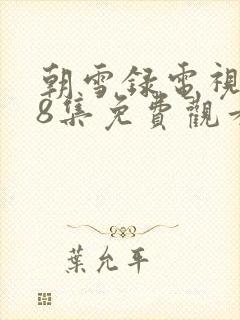 朝雪録電視
8集免費觀看
葉允平